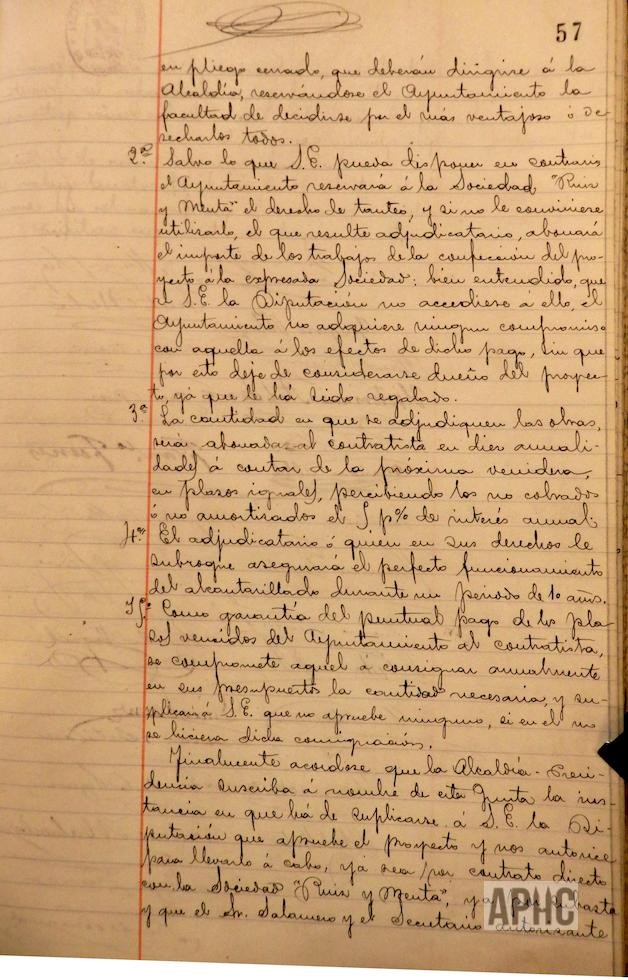 57
en pliego cerrado, que deberán dirigirse á la
Alcaldía, reservándose el Ayuntamiento la
facultad de decidirse por el más ventajoso ó de
secharlos todos.
2ª Salvo lo que S.E. pueda disponer en contrario
el Ayuntamiento reservará á la Sociedad "Ruiz
y Menta" el derecho de tanteo, y si no le conviniere
utilizarlo, el que resulte adjudicatario, abonará
el importe de los trabajos de la confección del pro-
yecto á la expresada Sociedad; bien entendido, que
si S.E. la Diputación no accediese á ello, el
Ayuntamiento no adquiere ningun compromiso
con aquella á los efectos de dicho pago, sin que
por esto deje de considerarse dueño del proyec-
to, yá que le há sido regalado.
3ª La cantidad en que se adjudiquen las obras,
será abonada al contratista en diez anuali-
dades á contar de la próxima venidera,
en plazos iguales, percibiendo los no cobrados
ó no amortizados el 5 p% de interés anual.
4ª El adjudicatario ó quien en sus derechos le
subrogue asegurará el perfecto funcionamiento
del alcantarillado durante un periodo de 10 años.
5ª Como garantía del puntual pago de los pla-
zos vencidos del Ayuntamiento al contratista,
se compromete aquel á consignar anualmente
en sus presupuestos la cantidad necesaria, y su-
plicará á S.E. que no apruebe ninguno, si en el no
se hiciera dicha consignación.
Finalmente acordose que la Alcaldía-Presi-
dencia suscriba á nombre de esta Junta la ins-
tancia en que há de suplicarse á S.E. la Di-
putación que apruebe el proyecto y nos autorice
para llevarlo á cabo, yá sea por contrato directo
con la Sociedad "Ruiz y Menta", yá por subasta
y que el Sr. Salamero y el Secretario autorizante
APHC